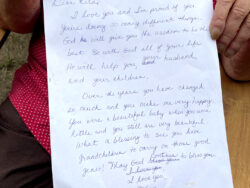 Dear
I love you and I'm proud of you
You're doing so many different things
God he will give you the wisdom to be the
best. So with out all of your life
He will help you, your husband,
and your children.
Over the years you have changed
so much and you make me very happy.
You were a beautiful baby when you were
little and you still are very beautiful
What a blessing to see you have
Grandchildren to carry on those good
genes! May God continue to bless you
I love you